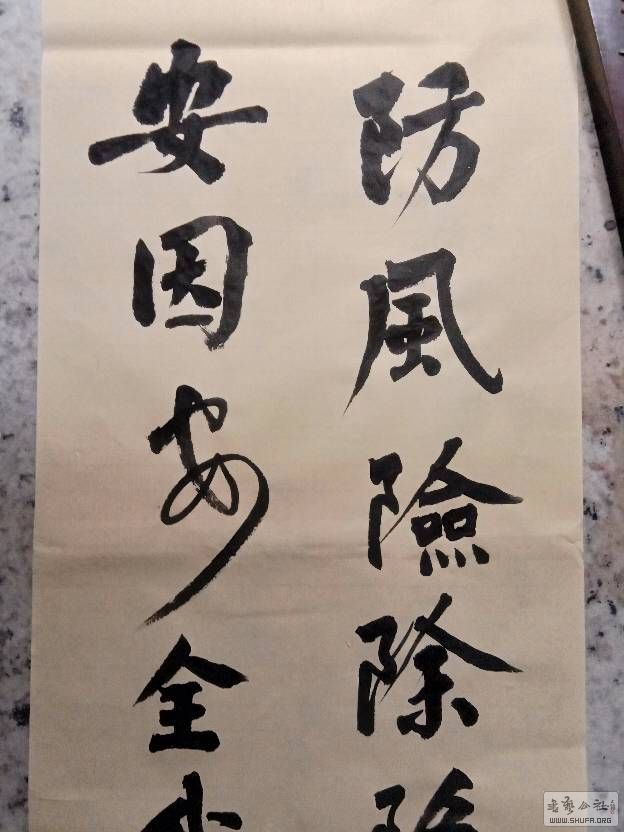 防風險除
安因安全
书艺公社
WWW.SHUFA.ORG